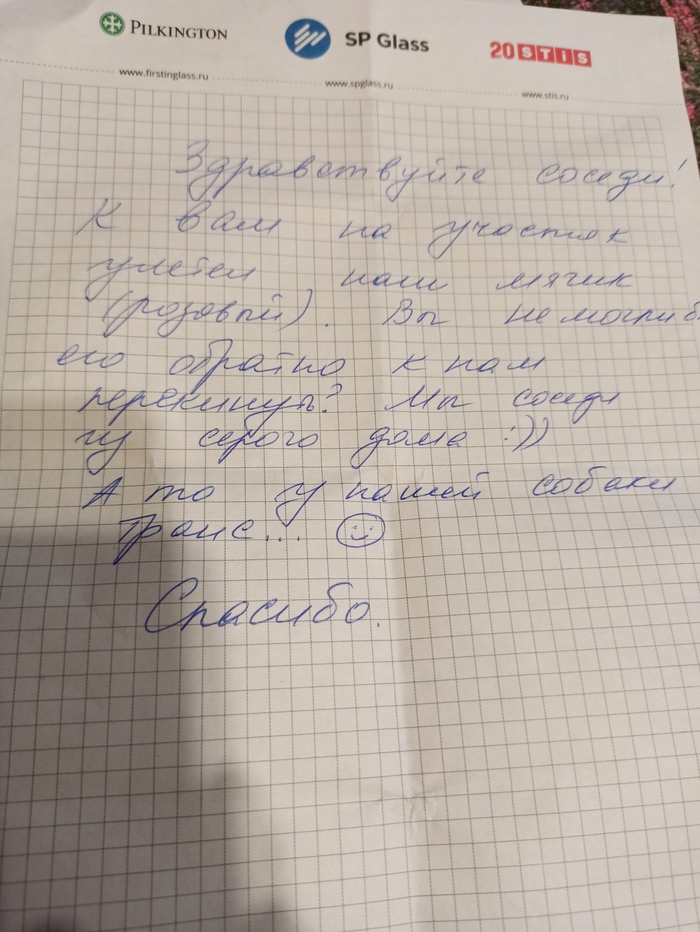 PILKINGTON
SP Glass
20 STiS
www.firstinglass.ru
www.spglass.ru
www.stis.ru
Здравствуйте соседи!
К вам на участок
улетел наш мячик
(розовый). Вы не могли б
его обратно к нам
перекинуть? Мы соседи
из серого дома :))
А то у нашей собаки
транс... 
Спасибо.